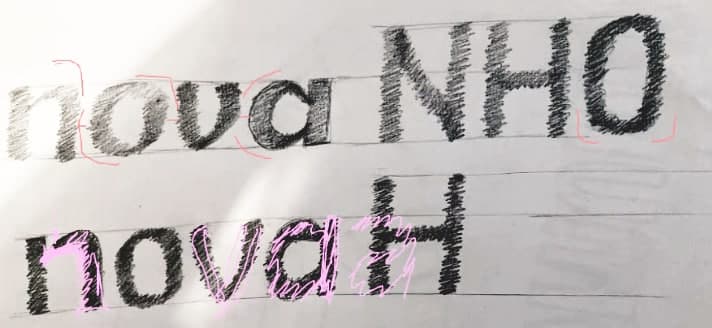 nova NHO
novaH